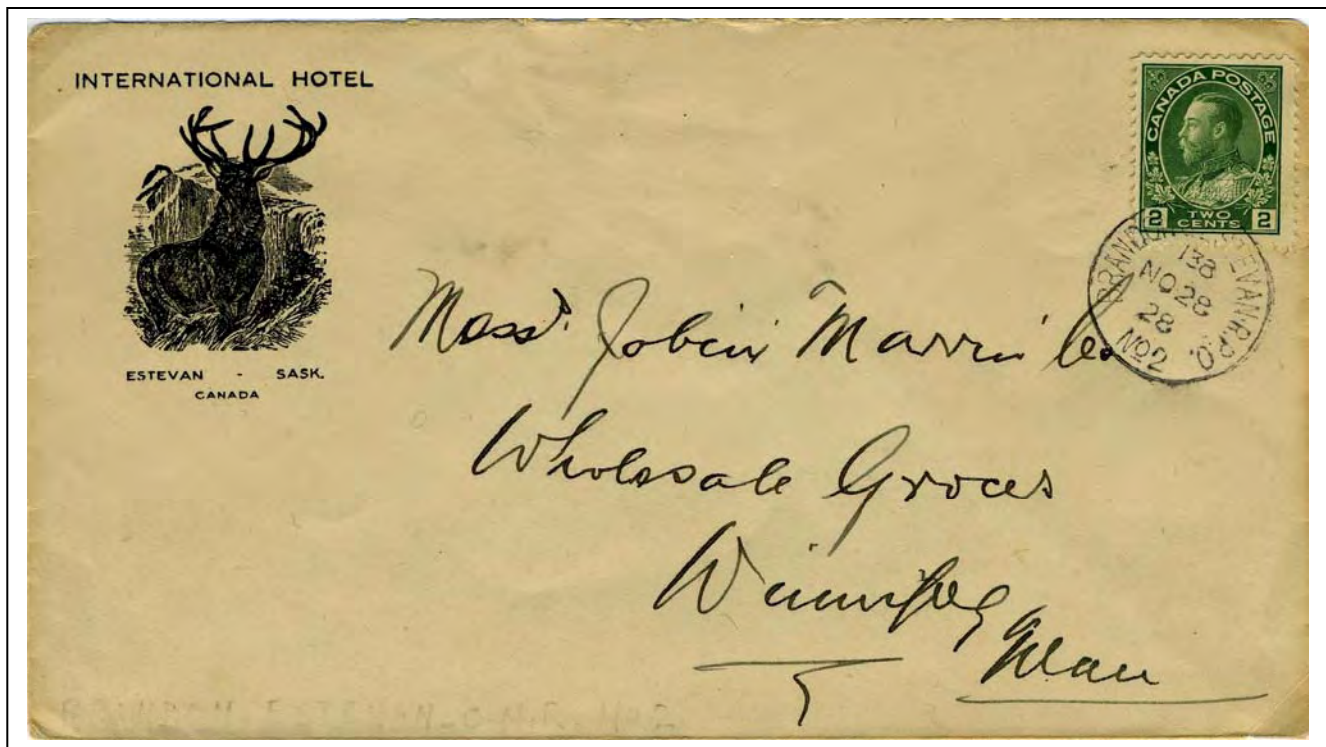 INTERNATIONAL HOTEL
ESTEVAN - SASK.
CANADA
CANADA POSTAGE
2 TWO CENTS 2
BRANDON & ESTEVAN. R.P.O.
138
NO 28
28
No2
Mess's. Jobin Marrin Co
Wholesale Groces
Winnipeg
Man